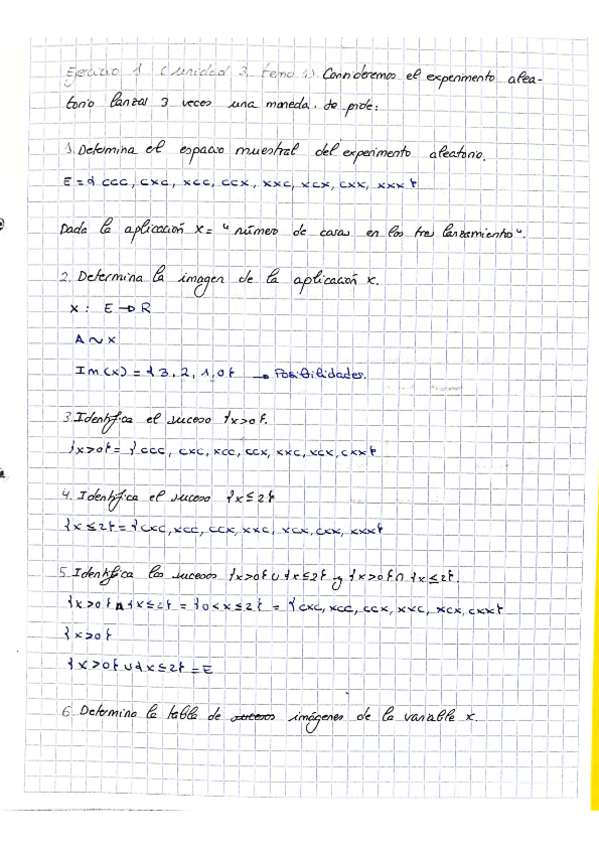 Ejercicio 1 (unidad 3. tema 1). Consideremos el experimento alea-
torio lanzar 3 veces una moneda. Se pide:
1. Determina el espacio muestral del experimento aleatorio.
E = { CCC, CXC, XCC, CCX, XXC, XCX, CXX, XXX }
Dada la aplicación X = "número de caras en los tres lanzamiento".
2. Determina la imagen de la aplicación X.
X : E → R
A ~ X
Im(X) = { 3, 2, 1, 0 } → Posibilidades.
3. Identifica el suceso {X>0}.
{X>0} = { CCC, CXC, XCC, CCX, XXC, XCX, CXX }
4. Identifica el suceso {X≤2}
{X≤2} = { CXC, XCC, CCX, XXC, XCX, CXX, XXX }
5. Identifica los sucesos {X>0} ∪ {X≤2} y {X>0} ∩ {X≤2}.
{X>0} ∩ {X≤2} = {0<X≤2} = { CXC, XCC, CCX, XXC, XCX, CXX }
{X>0}
{X>0} ∪ {X≤2} = E
6. Determina la tabla de sucesos imágenes de la variable X.